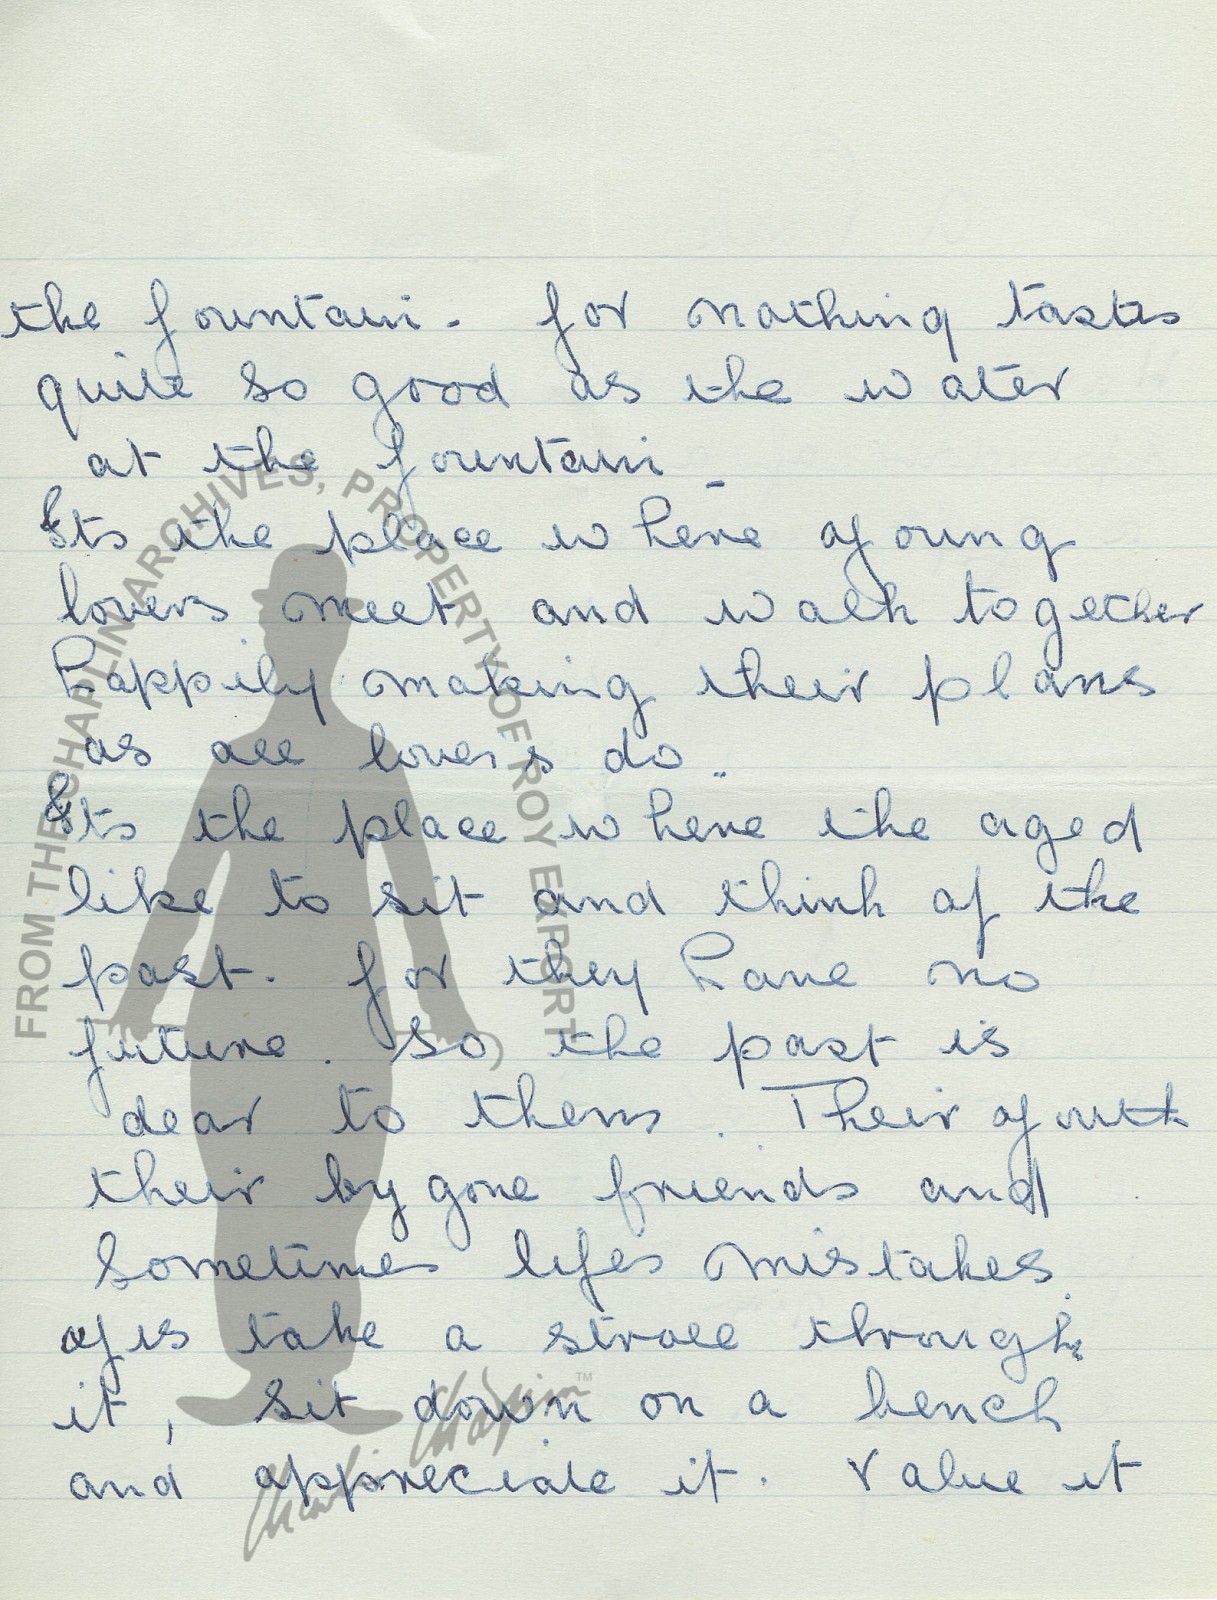 the fountain. for nothing tastes
quite so good as the water
at the fountain
Its the place where young
lovers meet and walk together
happily making their plans
as all lovers do..
Its the place where the aged
like to sit and think of the
past. for they have no
future. So the past is
dear to them. Their youth
their bygone friends and
sometimes lifes mistakes.
yes take a stroll through
it, sit down on a bench
and appreciate it. Value it
FROM THE CHAPLIN ARCHIVES, PROPERTY OF ROY EXPORT
Charlie Chaplin™